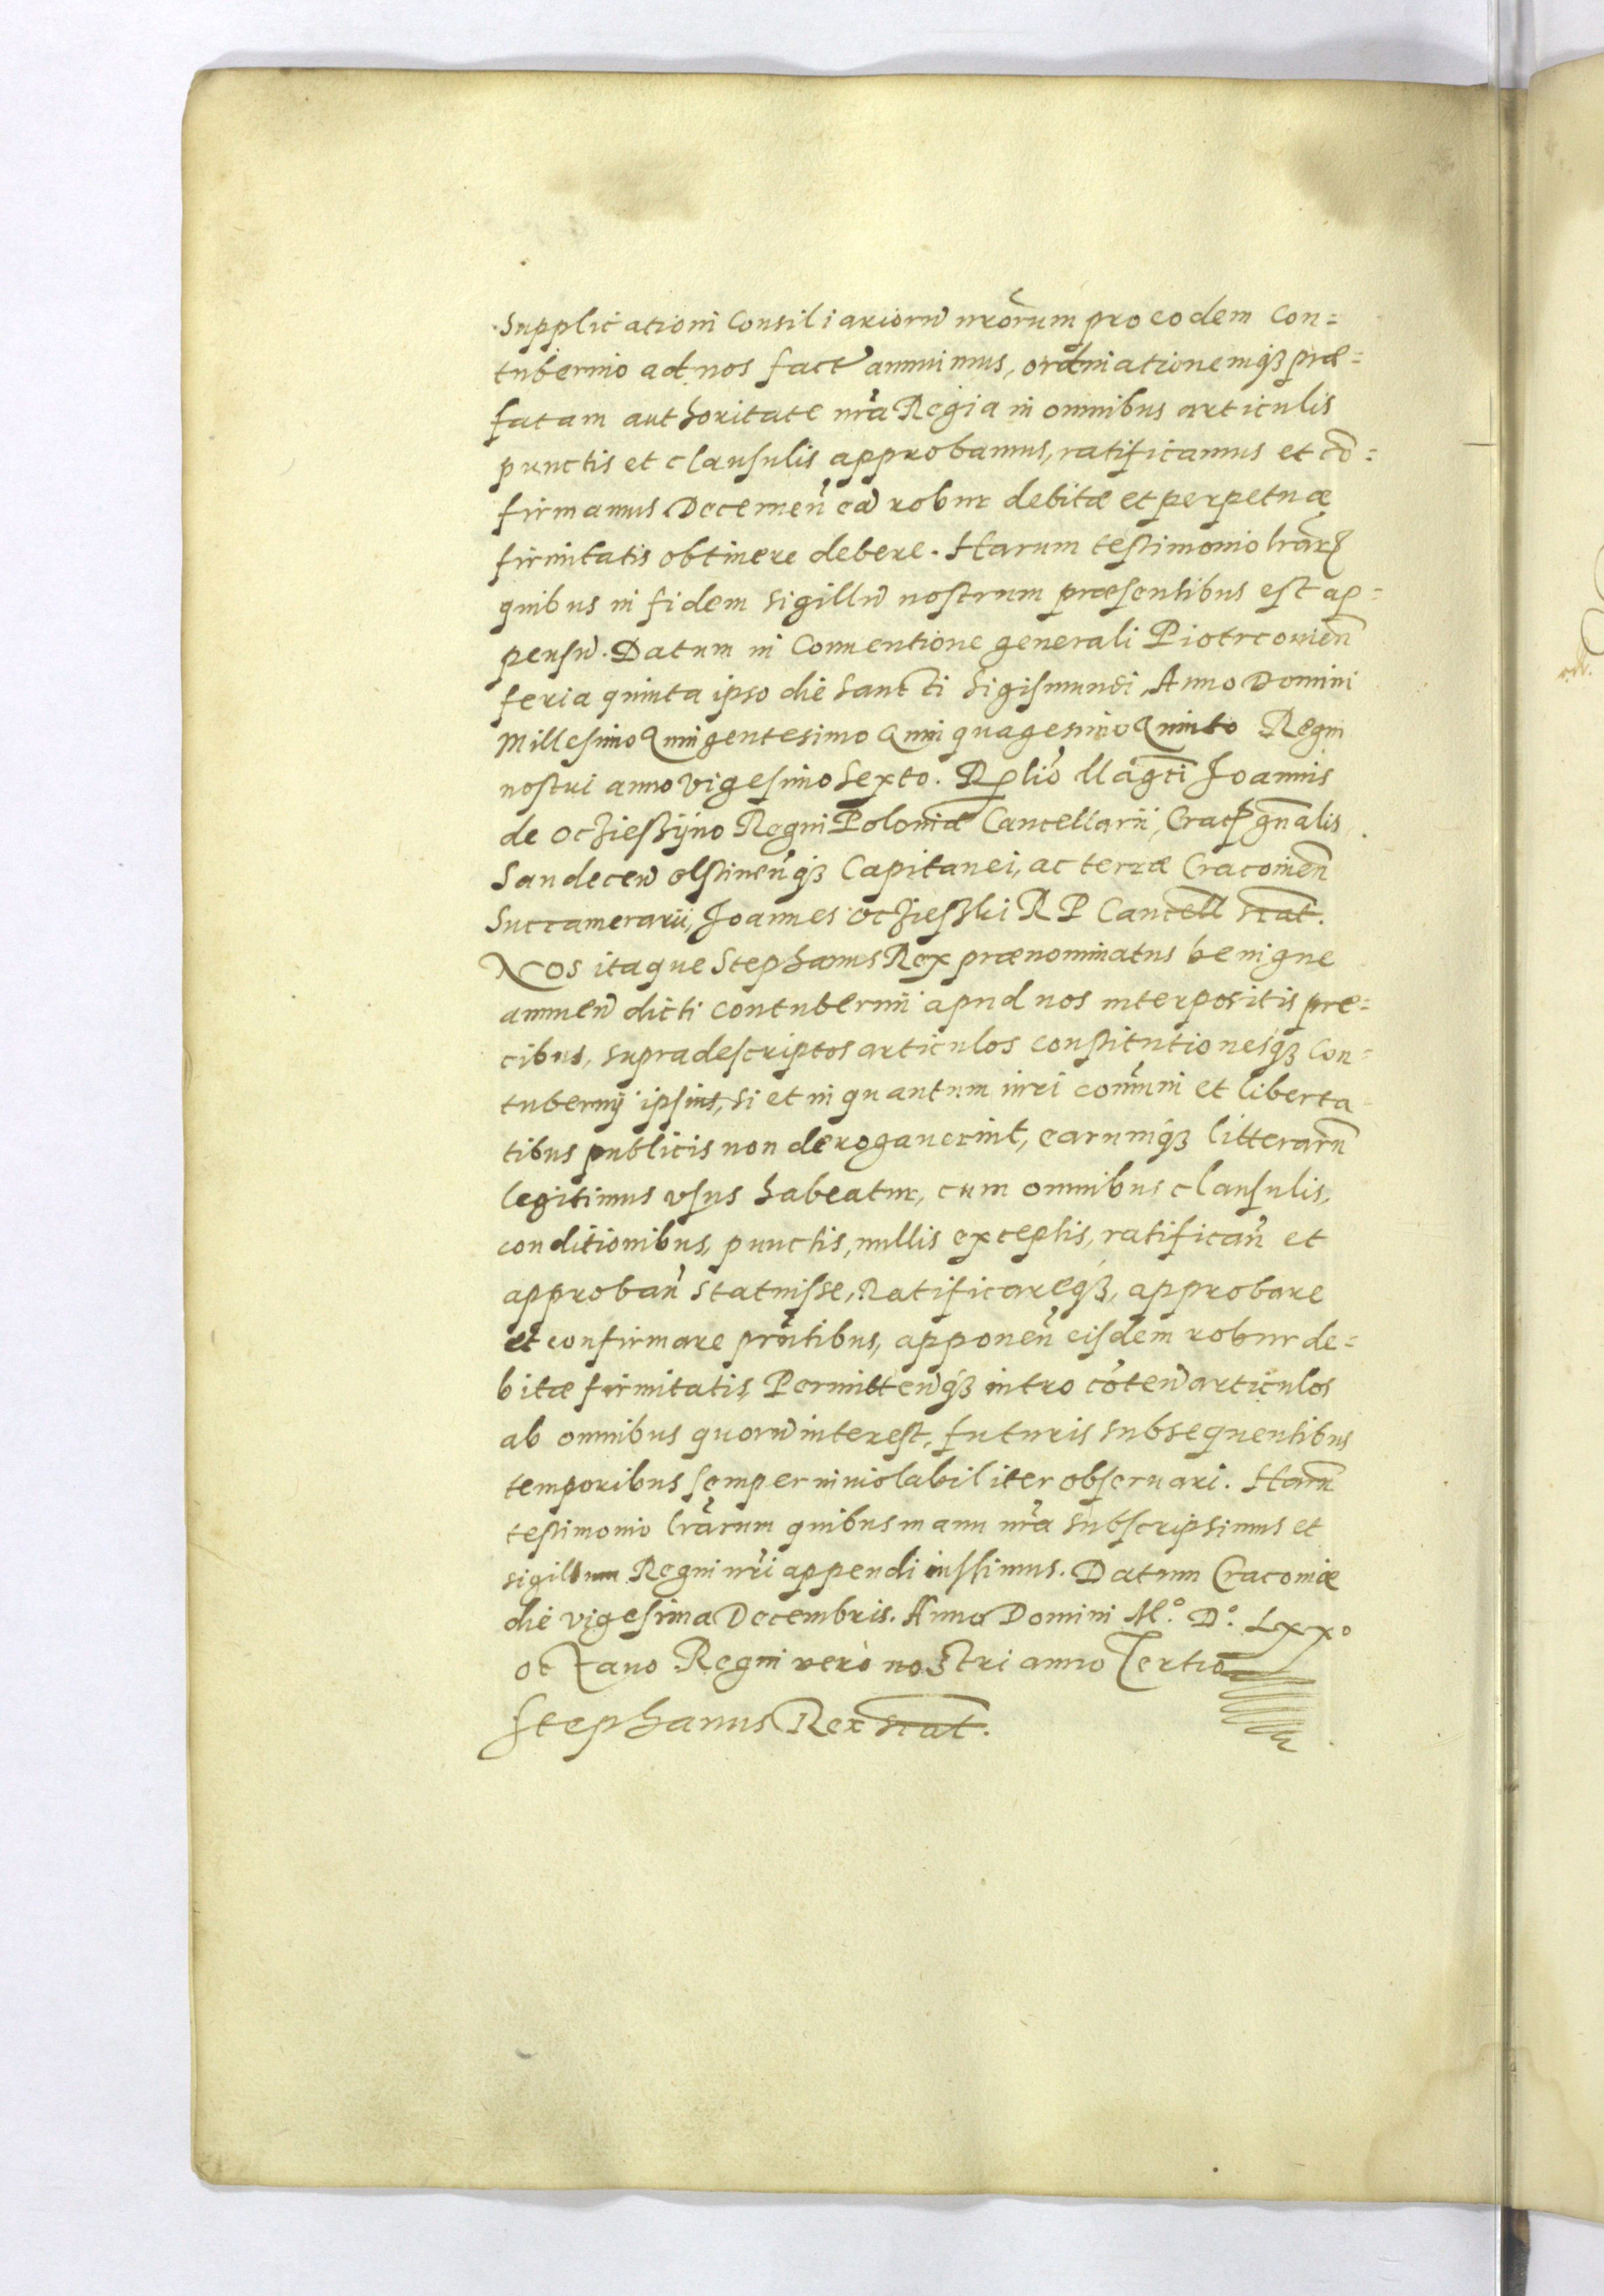 Supplicationi Consiliariorũ nrõrum pro eodem Con=
tubernio ad nos facte annuimus, ordinationemq₃ præ=
fatam authoritate nr̃a Regia in omnibus articulis
punctis et clausulis approbamus, ratificamus et cõ=
firmamus Decernen̄ ea robur debitæ et perpetuæ
firmitatis obtinere debere. Harum testimonio lr̃arꝝ
quibus in fidem sigillũ nostrum præsentibus est ap=
pensũ. Datum in Conuentione generali Piotrcouien̄
feria quinta ipso die Sancti Sigismundi, Anno Domini
Millesimo Quingentesimo Quinquagesimo Quinto Regni
nostri anno vigesimo Sexto. Rełio Magci Joannis
de Ocziesszÿno Regni Poloniæ Cancellarii, Crac̃ gn̄alis
Sandecen̄ olstinen̄q₃ Capitanei, ac terræ Cracouien̄
Succamerarii, Joannes Ocziesski R P Cancell scat.
Nos itaque Stephanus Rex prænominatus benigne
annuen̄ dicti contubernii apud nos interpositis pre=
cibus, supradescriptos articulos constitutionesq₃ Con=
tubernij ipsius, si et in quantum iuri com̄uni et liberta
tibus publicis non derogauerint, earumq₃ litterarũ
legitimus vsus habeatur, cum omnibus clausulis,
conditionibus, punctis, nullis exceptis, ratifican̄ et
approban̄ statuisse, Ratificareq₃, approbare
et confirmare prñtibus, apponen̄ eisdem robur de=
bitæ firmitatis, Permitten̄q₃ intro cõten̄ articulos
ab omnibus quorũ interest, futuris subsequentibus
temporibus semper inuiolabiliter obseruari. Harũ
testimonio lr̃arum quibus manu nr̃a subscripsimus et
sigillum Regni nr̃i appendi iussimus. Datum Cracouiæ
die vigesima Decembris. Anno Domini M.° D.° Lxx°
octauo Regni verò nostri anno Tertio
Stephanus Rex scat.